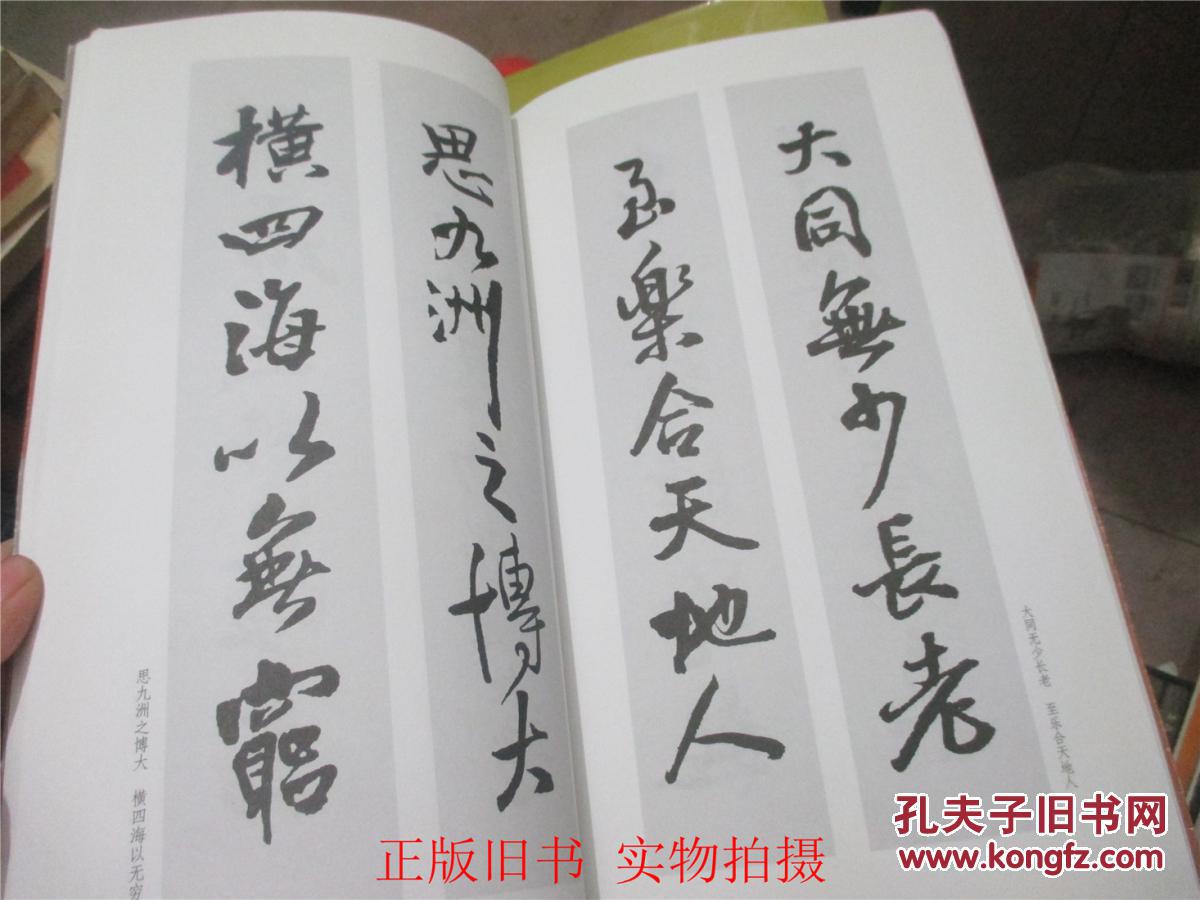 大同無少長老
至樂合天地人
大同无少长老 至乐合天地人
思九洲之博大
橫四海以無窮
思九洲之博大 横四海以无穷
孔夫子旧书网
www.kongfz.com
正版旧书 实物拍摄